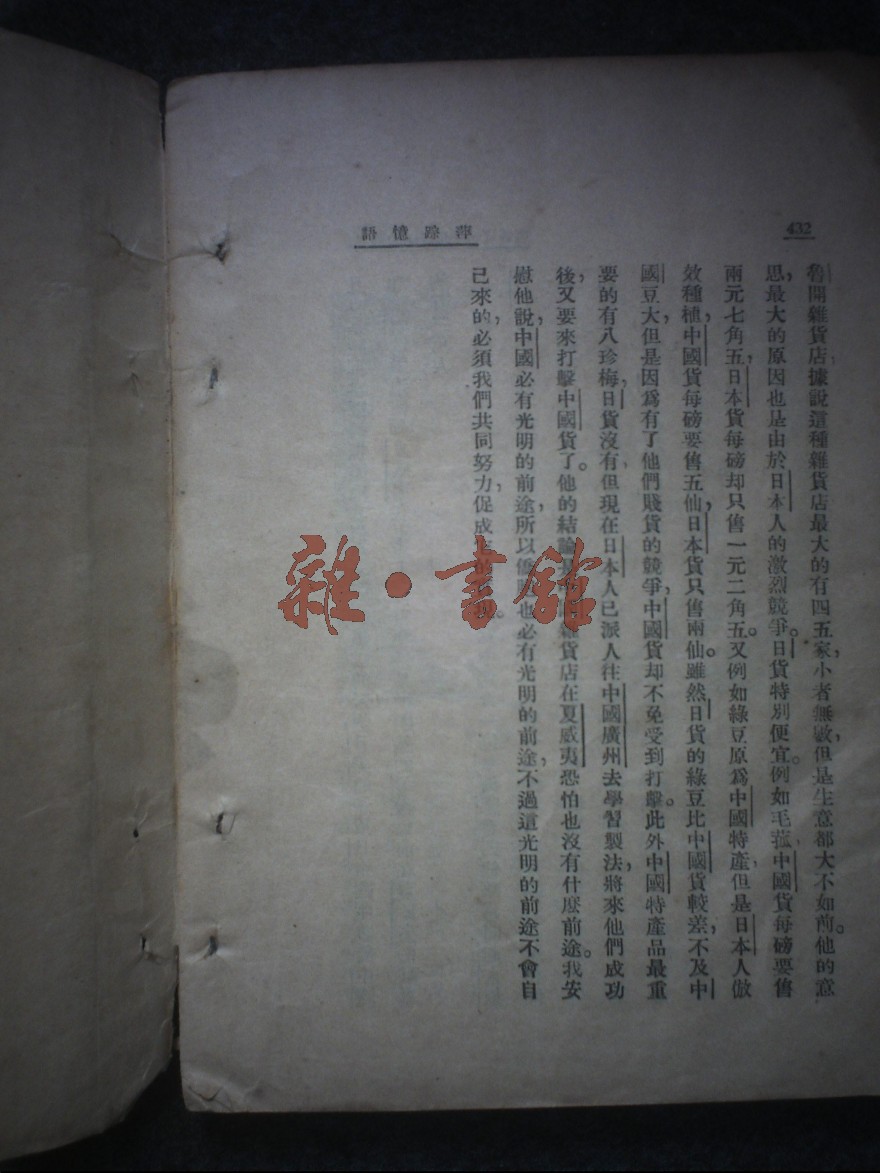 432
萍踪憶語
魯開雜貨店，據說這種雜貨店最大的有四五家，小者無數，但是生意都大不如前。他的意
思，最大的原因也是由於日本人的激烈競爭。日貨特別便宜。例如毛菰，中國貨每磅要售
兩元七角五，日本貨每磅却只售一元二角五。又例如綠豆原爲中國特產，但是日本人倣
效種植，中國貨每磅要售五仙，日本貨只售兩仙。雖然日貨的綠豆比中國貨較差，不及中
國豆大，但是因爲有了他們賤貨的競爭，中國貨却不免受到打擊。此外中國特產品最重
要的有八珍梅，日貨沒有，但現在日本人已派人往中國廣州去學習製法，將來他們成功
後，又要來打擊中國貨了。他的結論是雜貨店在夏威夷恐怕也沒有什麽前途。我安
慰他說，中國必有光明的前途，所以僑也必有光明的前途，不過這光明的前途不會自
己來的，必須我們共同努力，促成的。
雜·書館